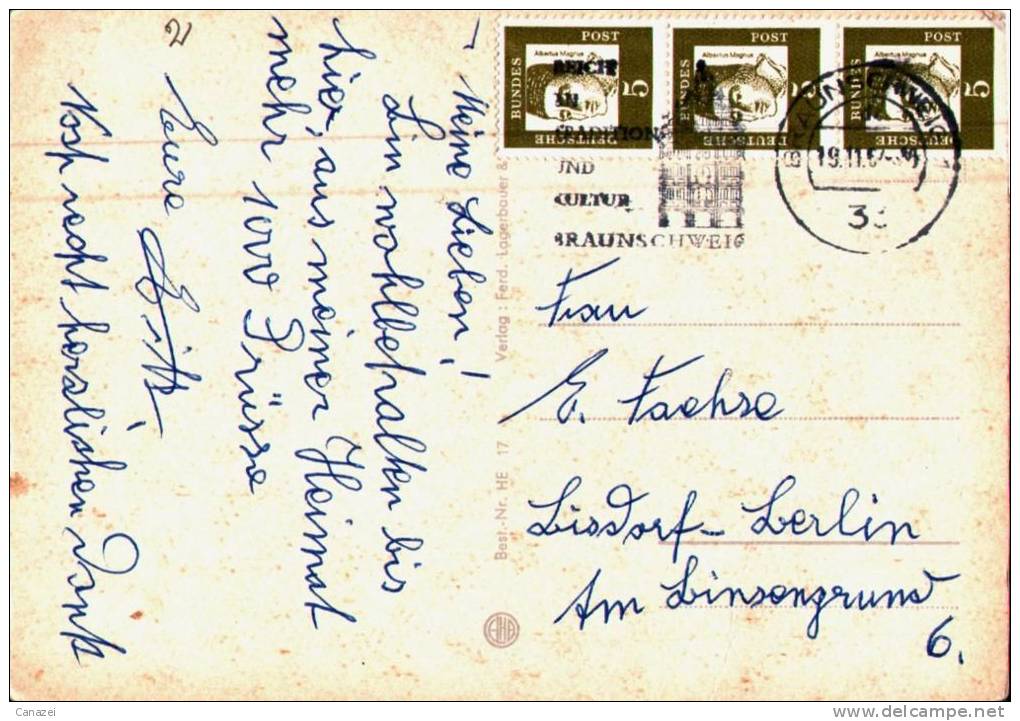 Meine Lieben!
Ein wohlbehalten bis
hier, aus meiner Heimat
mehr 1000 Grüsse
Eure
Noch recht herzlichen Dank
Verlag: Ferd. Lagerbauer &
Best.-Nr. HE 17
POST
Albertus Magnus
BUNDES
DEUTSCHE
5
POST
Albertus Magnus
BUNDES
DEUTSCHE
5
POST
Albertus Magnus
BUNDES
DEUTSCHE
5
REICH
AN
TRADITION
UND
CULTUR
BRAUNSCHWEIG
BRAUNSCHWEIG
Frau
E. Faehse
Lisdorf-Berlin
Am Binsengrund
6.
Canazei
www.delcampe.net